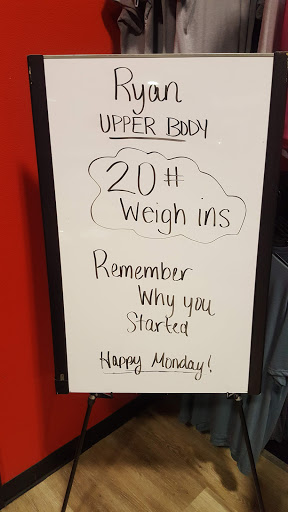 Ryan
UPPER BODY
20#
Weigh ins
Remember
Why you
Started
Happy Monday!